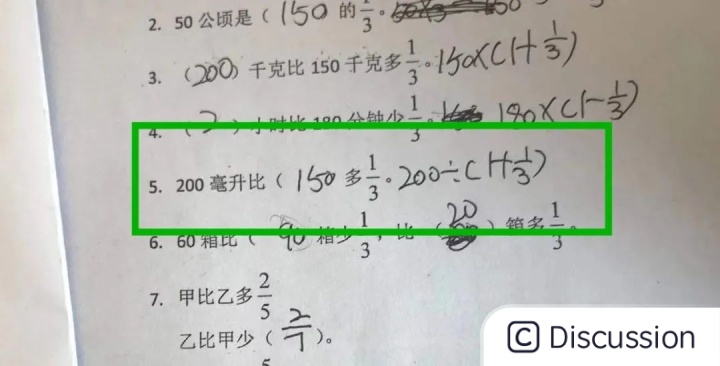 2. 50公顷是（150 的1/3。
3. （200）千克比 150 千克多1/3。150×(1+1/3)
4. （2）小时比 180 分钟少1/3。180×(1-1/3)
5. 200 毫升比（150 多1/3。200÷(1+1/3)
6. 60 箱比（90 箱少1/3，比（20）箱多1/3。
7. 甲比乙多2/5
乙比甲少（2/7）。
5
C Discussion